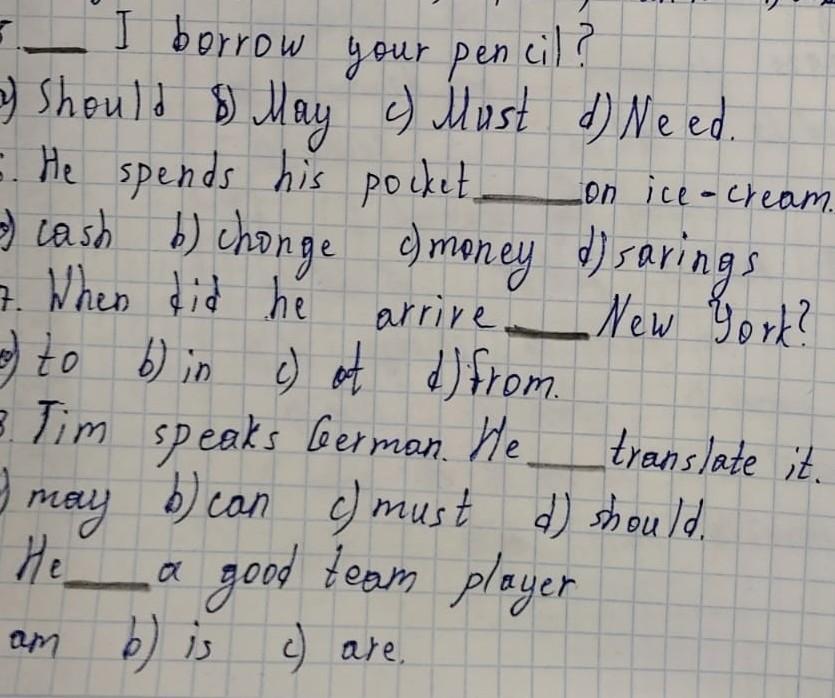 5. ___ I borrow your pencil?
a) Should b) May c) Must d) Need.
6. He spends his pocket ___ on ice-cream.
a) cash b) change c) money d) savings
7. When did he arrive ___ New York?
a) to b) in c) at d) from.
8. Tim speaks German. He ___ translate it.
a) may b) can c) must d) should.
He ___ a good team player
am b) is c) are.